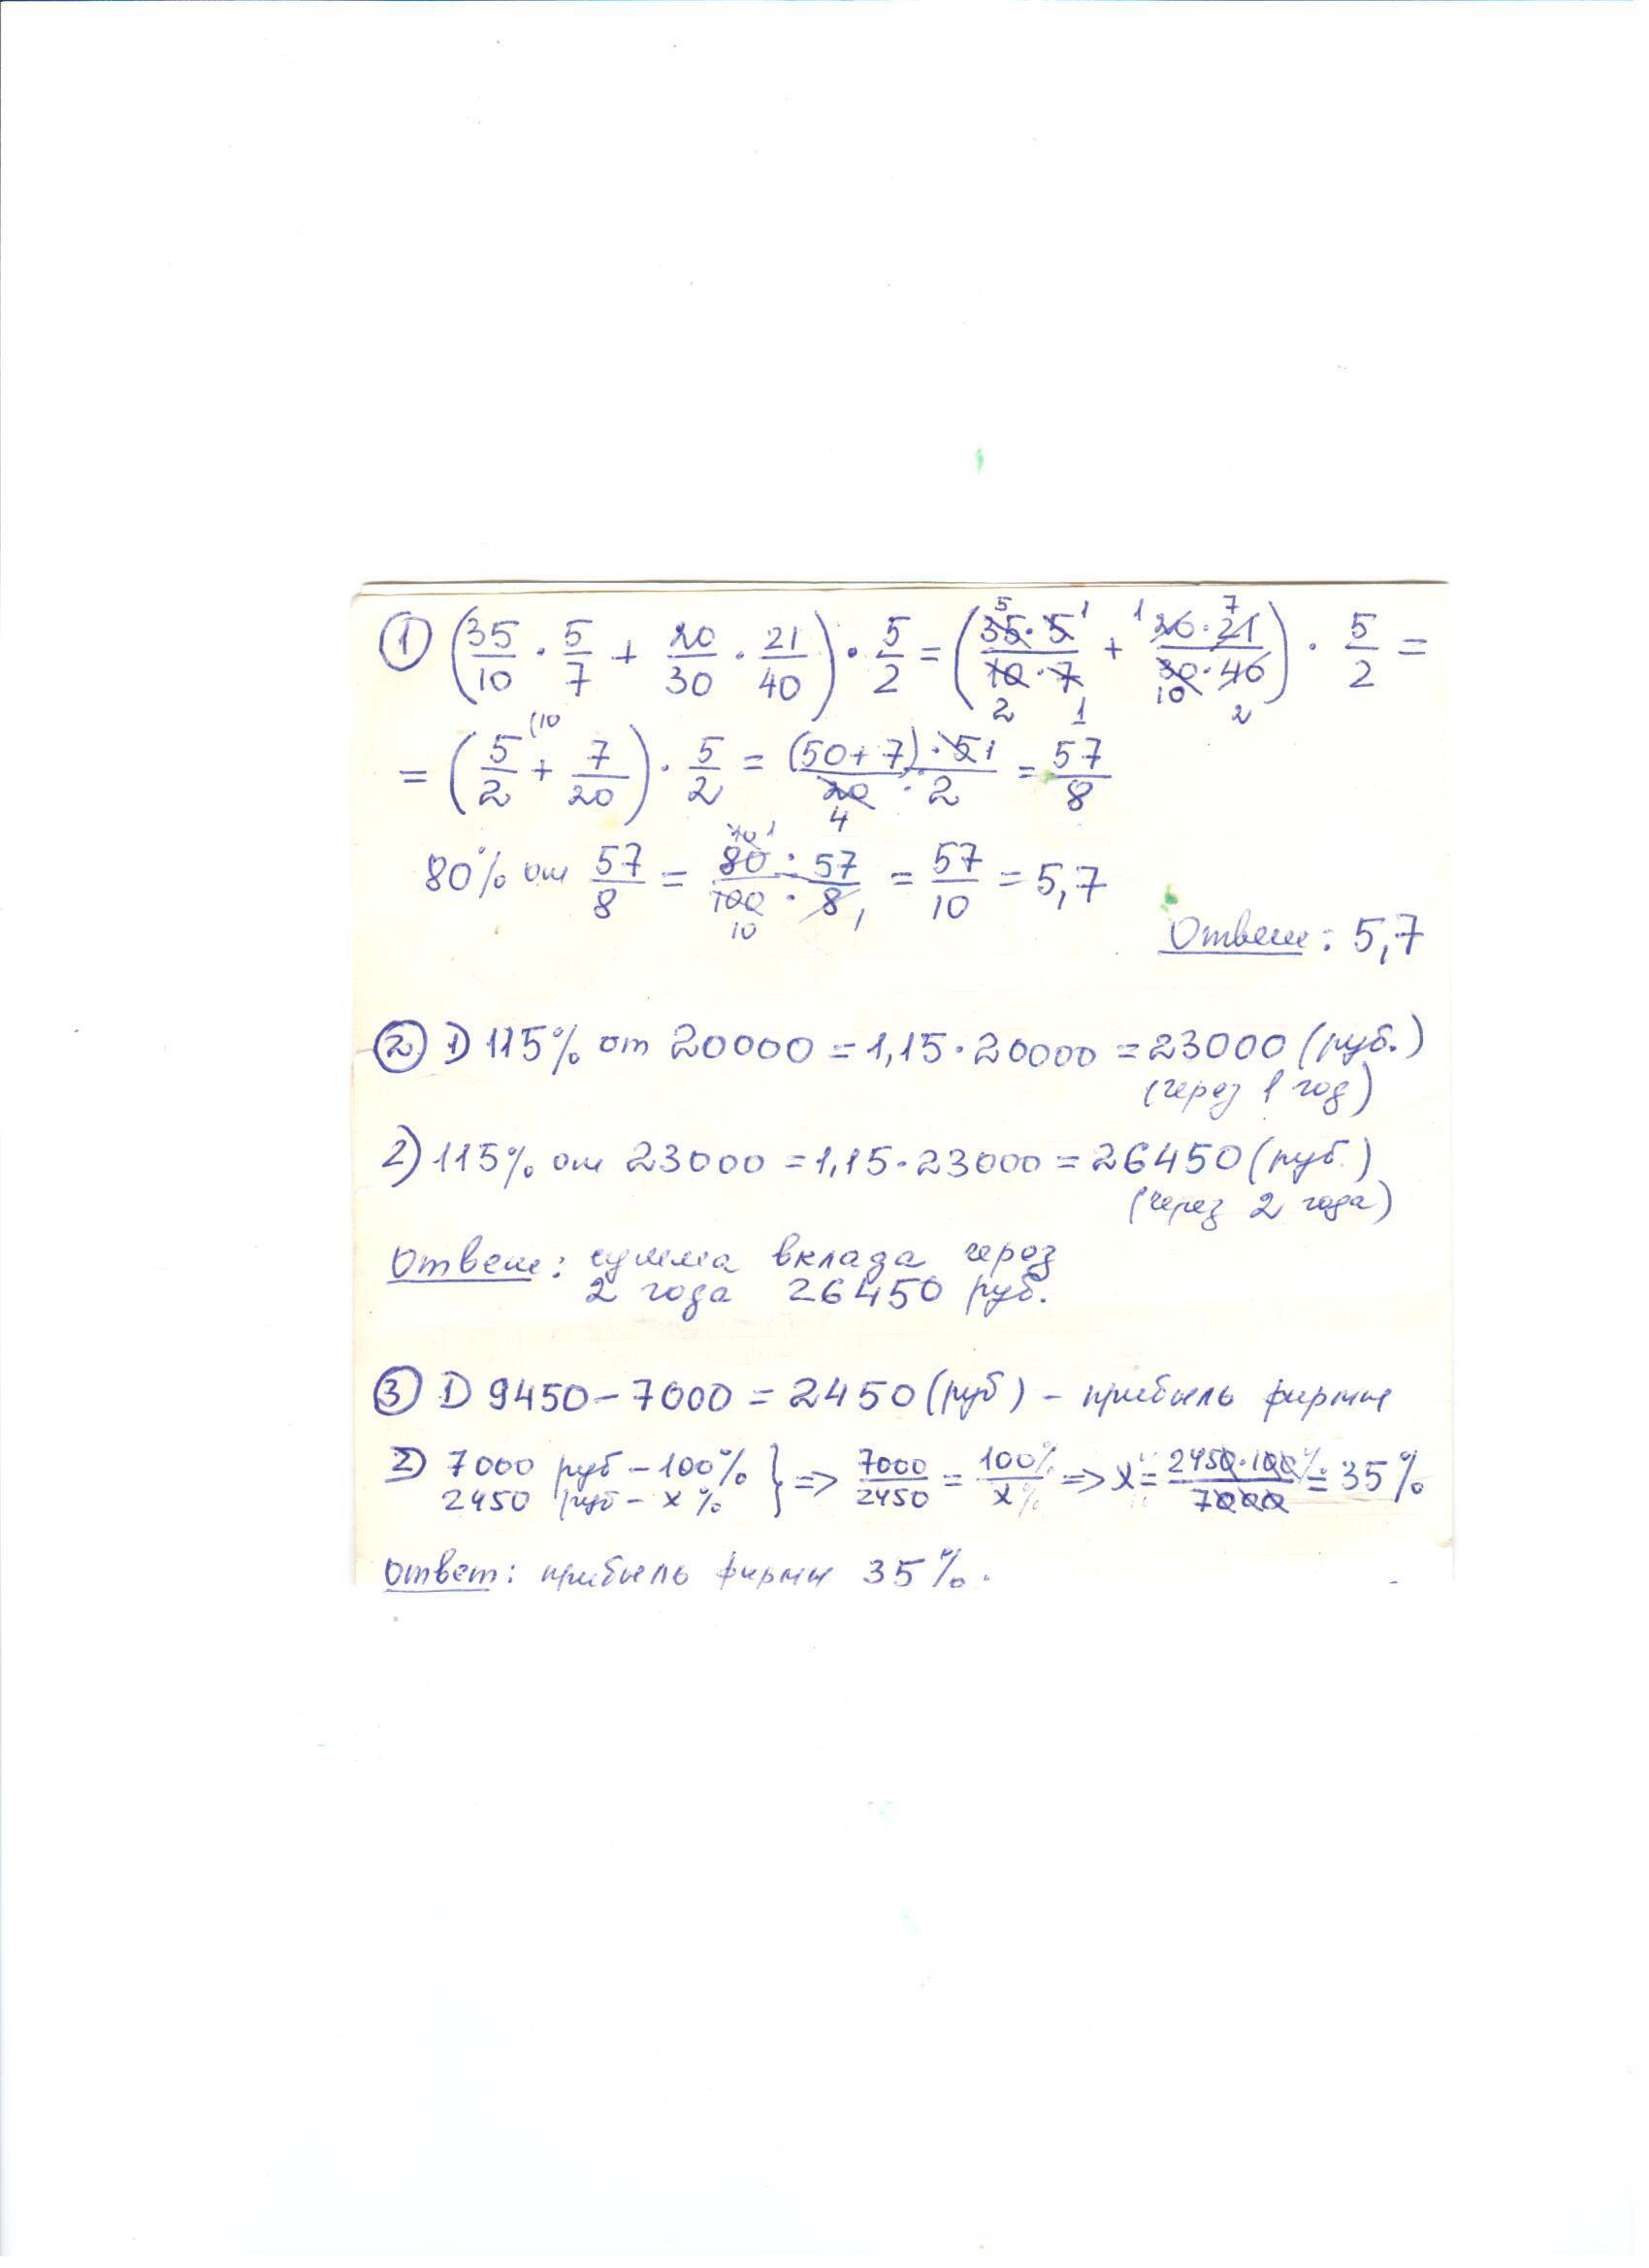 ① (35/10 · 5/7 + 20/30 · 21/40) · 5/2 = (35·5/10·7 + 20·21/30·40) · 5/2 =
= (5/2 + 7/20) · 5/2 = (50+7)·5/20·2 = 57/8
80% от 57/8 = 80·57/100·8 = 57/10 = 5,7
Ответ: 5,7
② 1) 115% от 20000 = 1,15·20000 = 23000 (руб.)
(через 1 год)
2) 115% от 23000 = 1,15·23000 = 26450 (руб.)
(через 2 года)
Ответ: сумма вклада через
2 года 26450 руб.
③ 1) 9450 – 7000 = 2450 (руб) – прибыль фирмы
2) 7000 руб – 100% } => 7000/2450 = 100%/x% => x = 2450·100%/7000 = 35%
2450 руб – x %
Ответ: прибыль фирмы 35%.